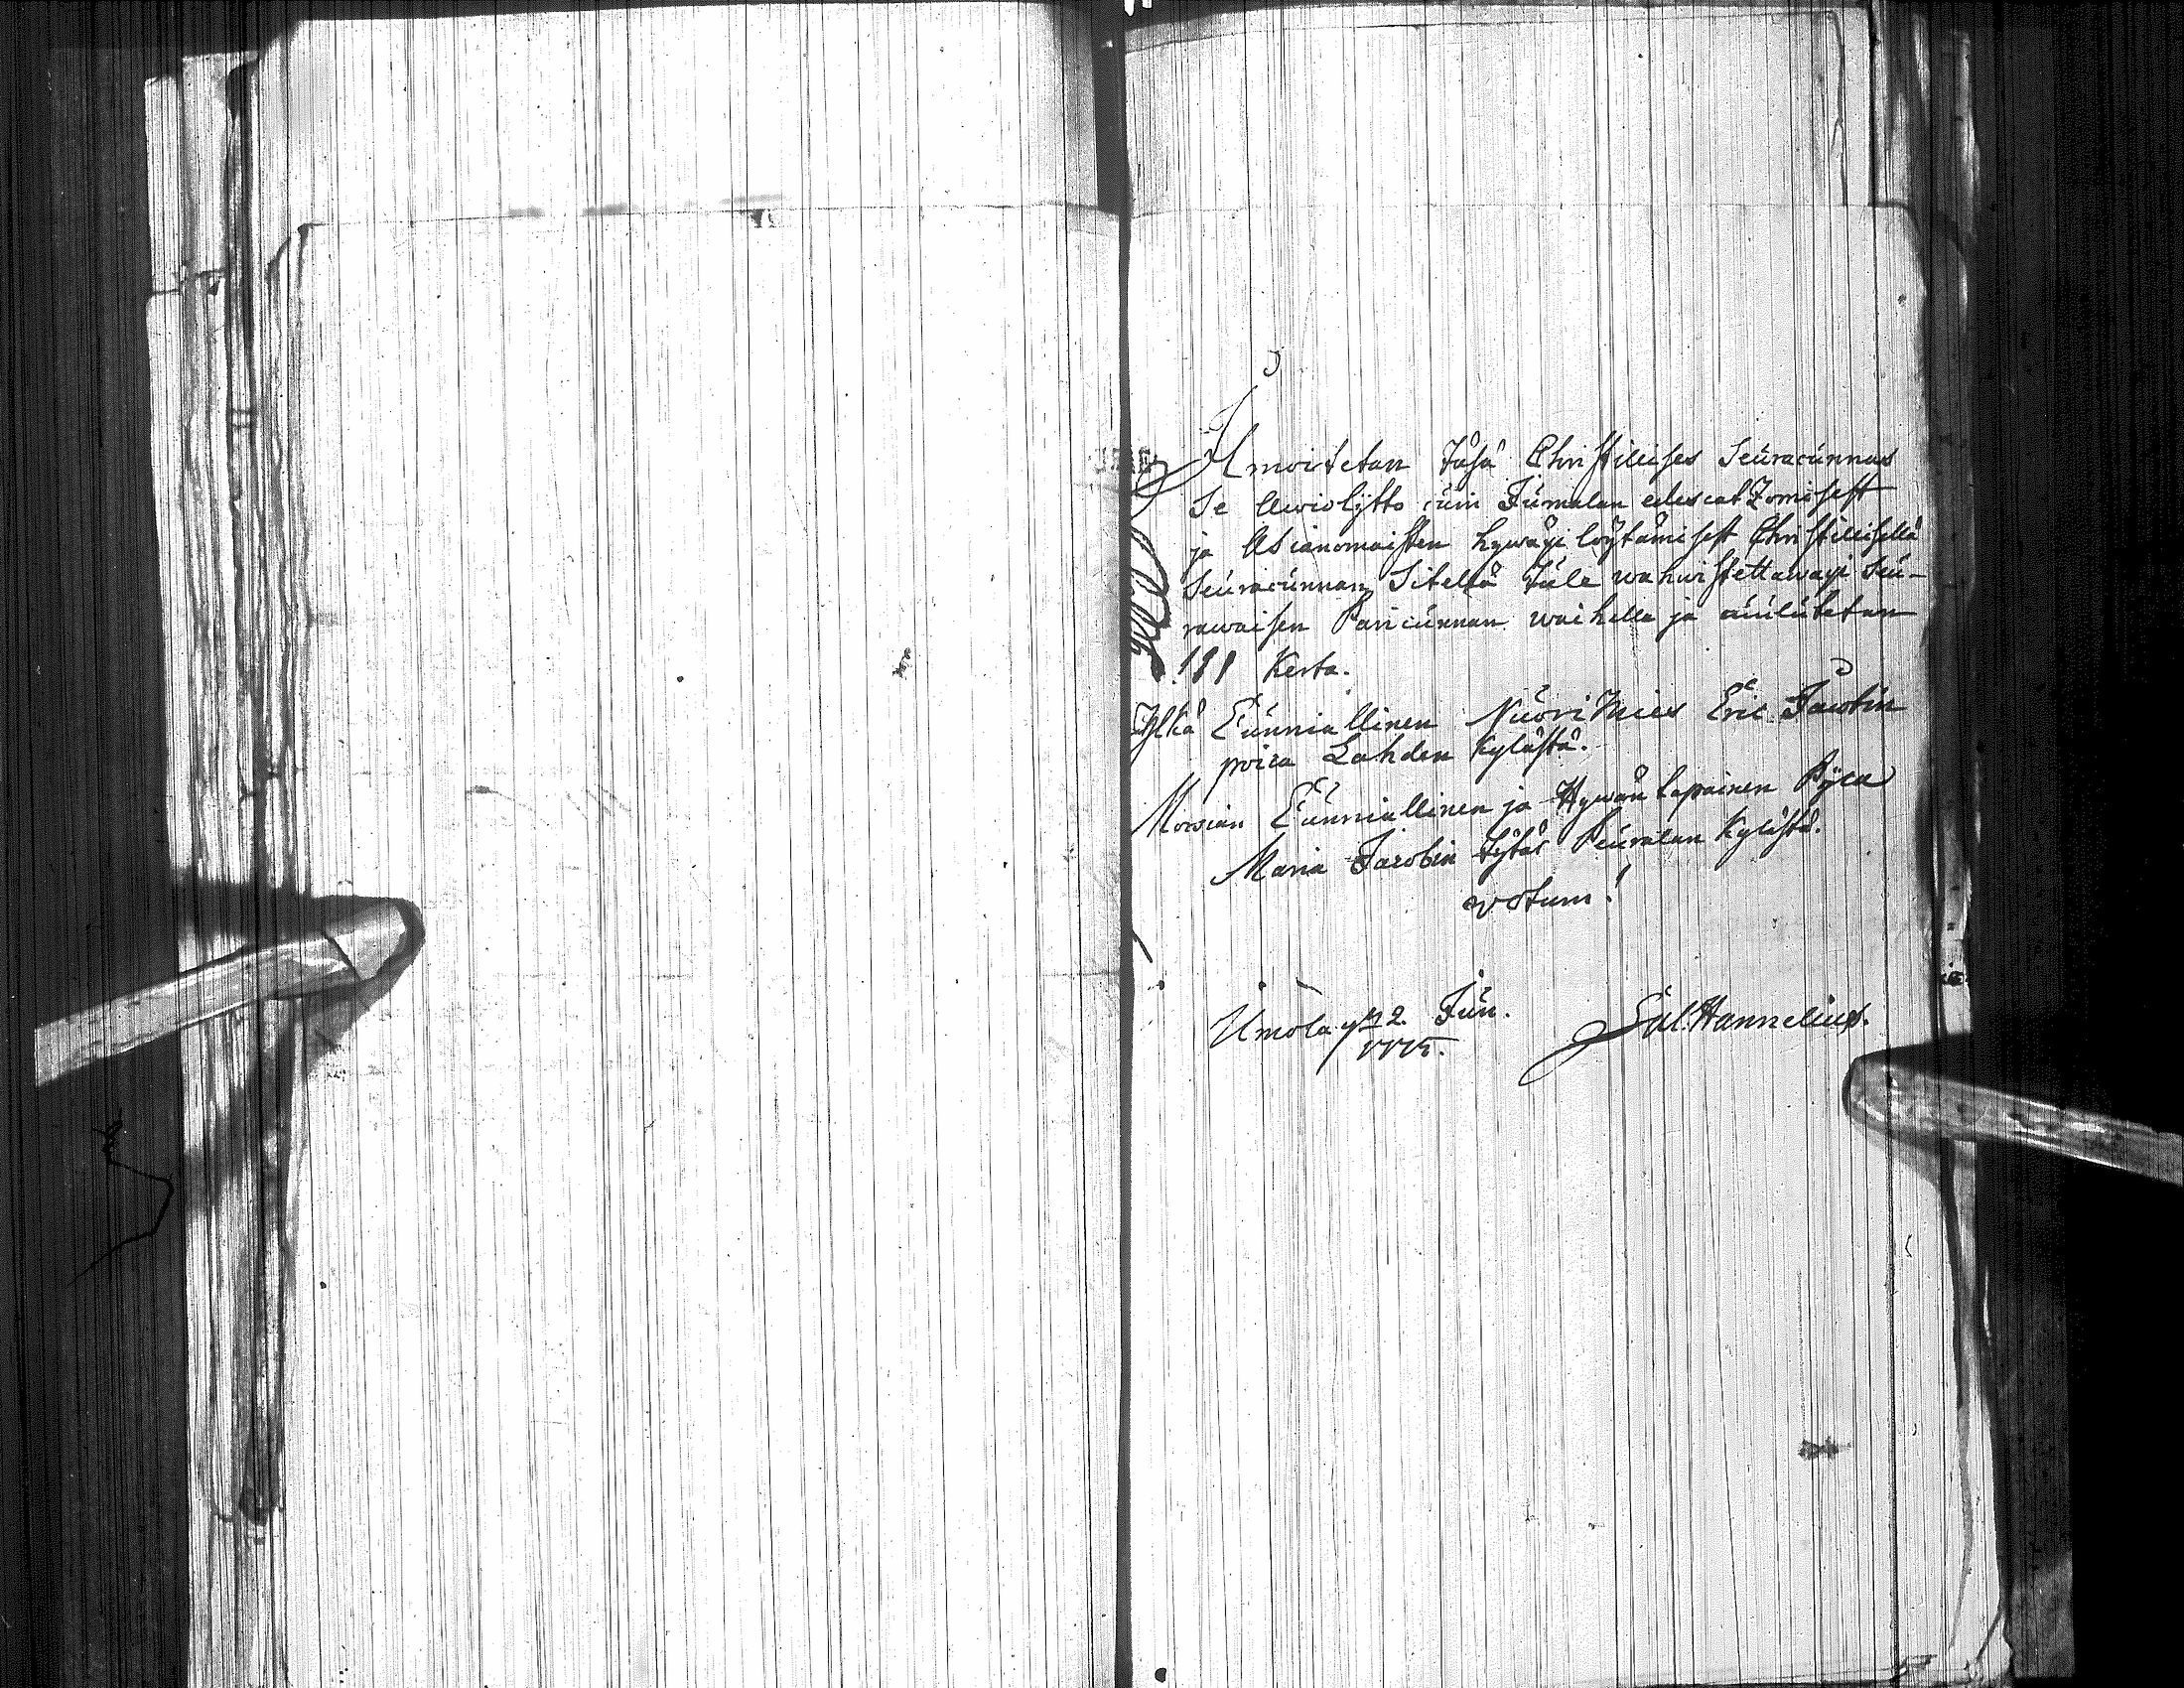 Ilmoitetan täsä Christilises Seuracunnas
Se Awiolijtto cuin Jumalan edescatzomisest
ja Asianomaisten hywäxi löytämisest Christilisellä
Seuracunnan Sitellä tule wahwistettawaxi Seu-
rawaisen Paricunnan waihella ja cuulutetan
1 Kerta.
Ylkä Cunniallinen Nuori Mies Eric Jacobin
poica Lahden Kylästä.
Morsian Cunniallinen ja Hywän tapainen Pijca
Maria Jacobin tytär Peuralan Kylästä.
votum!
Umola 2. Jun.
1775.
Sal. Hannelius.